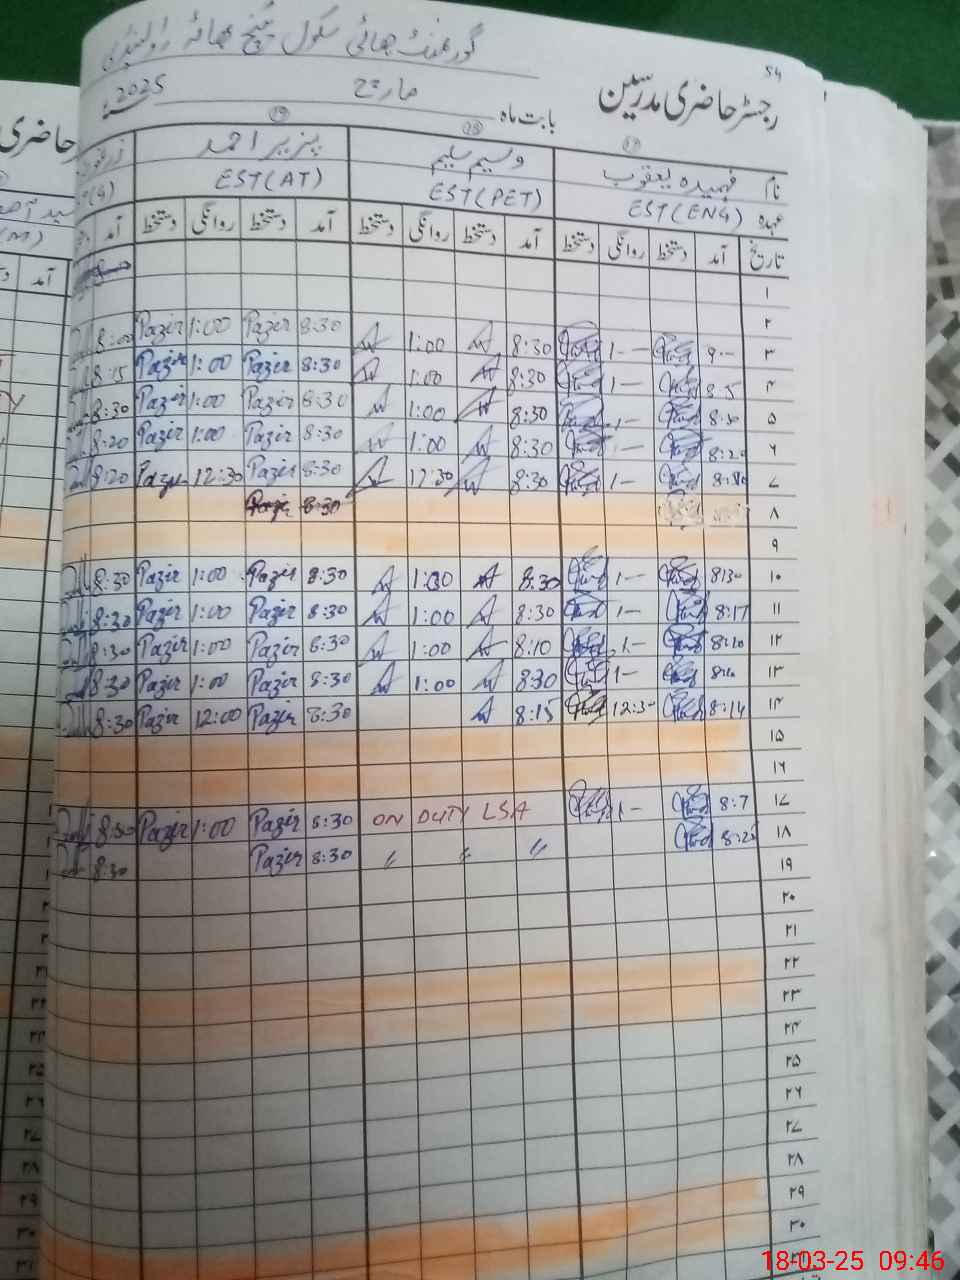 ۵۴
گورنمنٹ ہائی سکول گنج بھاٹہ راولپنڈی
رجسٹر حاضری مدرسین
بابت ماہ مارچ ۲۰۲۵
حاضری
نام فہمیدہ یعقوب وسیم سلیم پذیر احمد
عہدہ EST(ENG) EST(PET) EST(AT)
تاریخ آمد دستخط روانگی دستخط آمد دستخط روانگی دستخط آمد دستخط روانگی دستخط آمد
آمد
۱
۲
۳ 9:00 1- 8:30 1:00 8:30 Pazir 1:00 Pazir 8:00
۴ 8:5 1- 8:30 1:00 8:30 Pazir 1:00 Pazir 8:15
۵ 8:30 1- 8:30 1:00 8:30 Pazir 1:00 Pazir 8:30
۶ 8:20 1- 8:30 1:00 8:30 Pazir 1:00 Pazir 8:20
۷ 1- 8:30 12:30 8:30 Pazir 12:30 Pazir 8:20
۸ 8:30 Pazir
۹
۱۰ 8:30 1- 8:30 1:00 8:30 Pazir 1:00 Pazir 8:30
۱۱ 8:17 1- 8:30 1:00 8:30 Pazir 1:00 Pazir 8:30
۱۲ 8:20 1- 8:10 1:00 8:30 Pazir 1:00 Pazir 8:30
۱۳ 1- 8:30 1:00 8:30 Pazir 1:00 Pazir 8:30
۱۴ 8:14 12:30 8:15 8:30 Pazir 12:00 Pazir 8:30
۱۵
۱۶
۱۷ 8:7 1- ON DUTY LSA 8:30 Pazir 1:00 Pazir 8:30
۱۸ 8:25 " " " 8:30 Pazir 8:30
۱۹
۲۰
۲۱
۲۲
۲۳
۲۴
۲۵
۲۶
۲۷
۲۸
۲۹
۳۰
۳۱
18-03-25 09:46